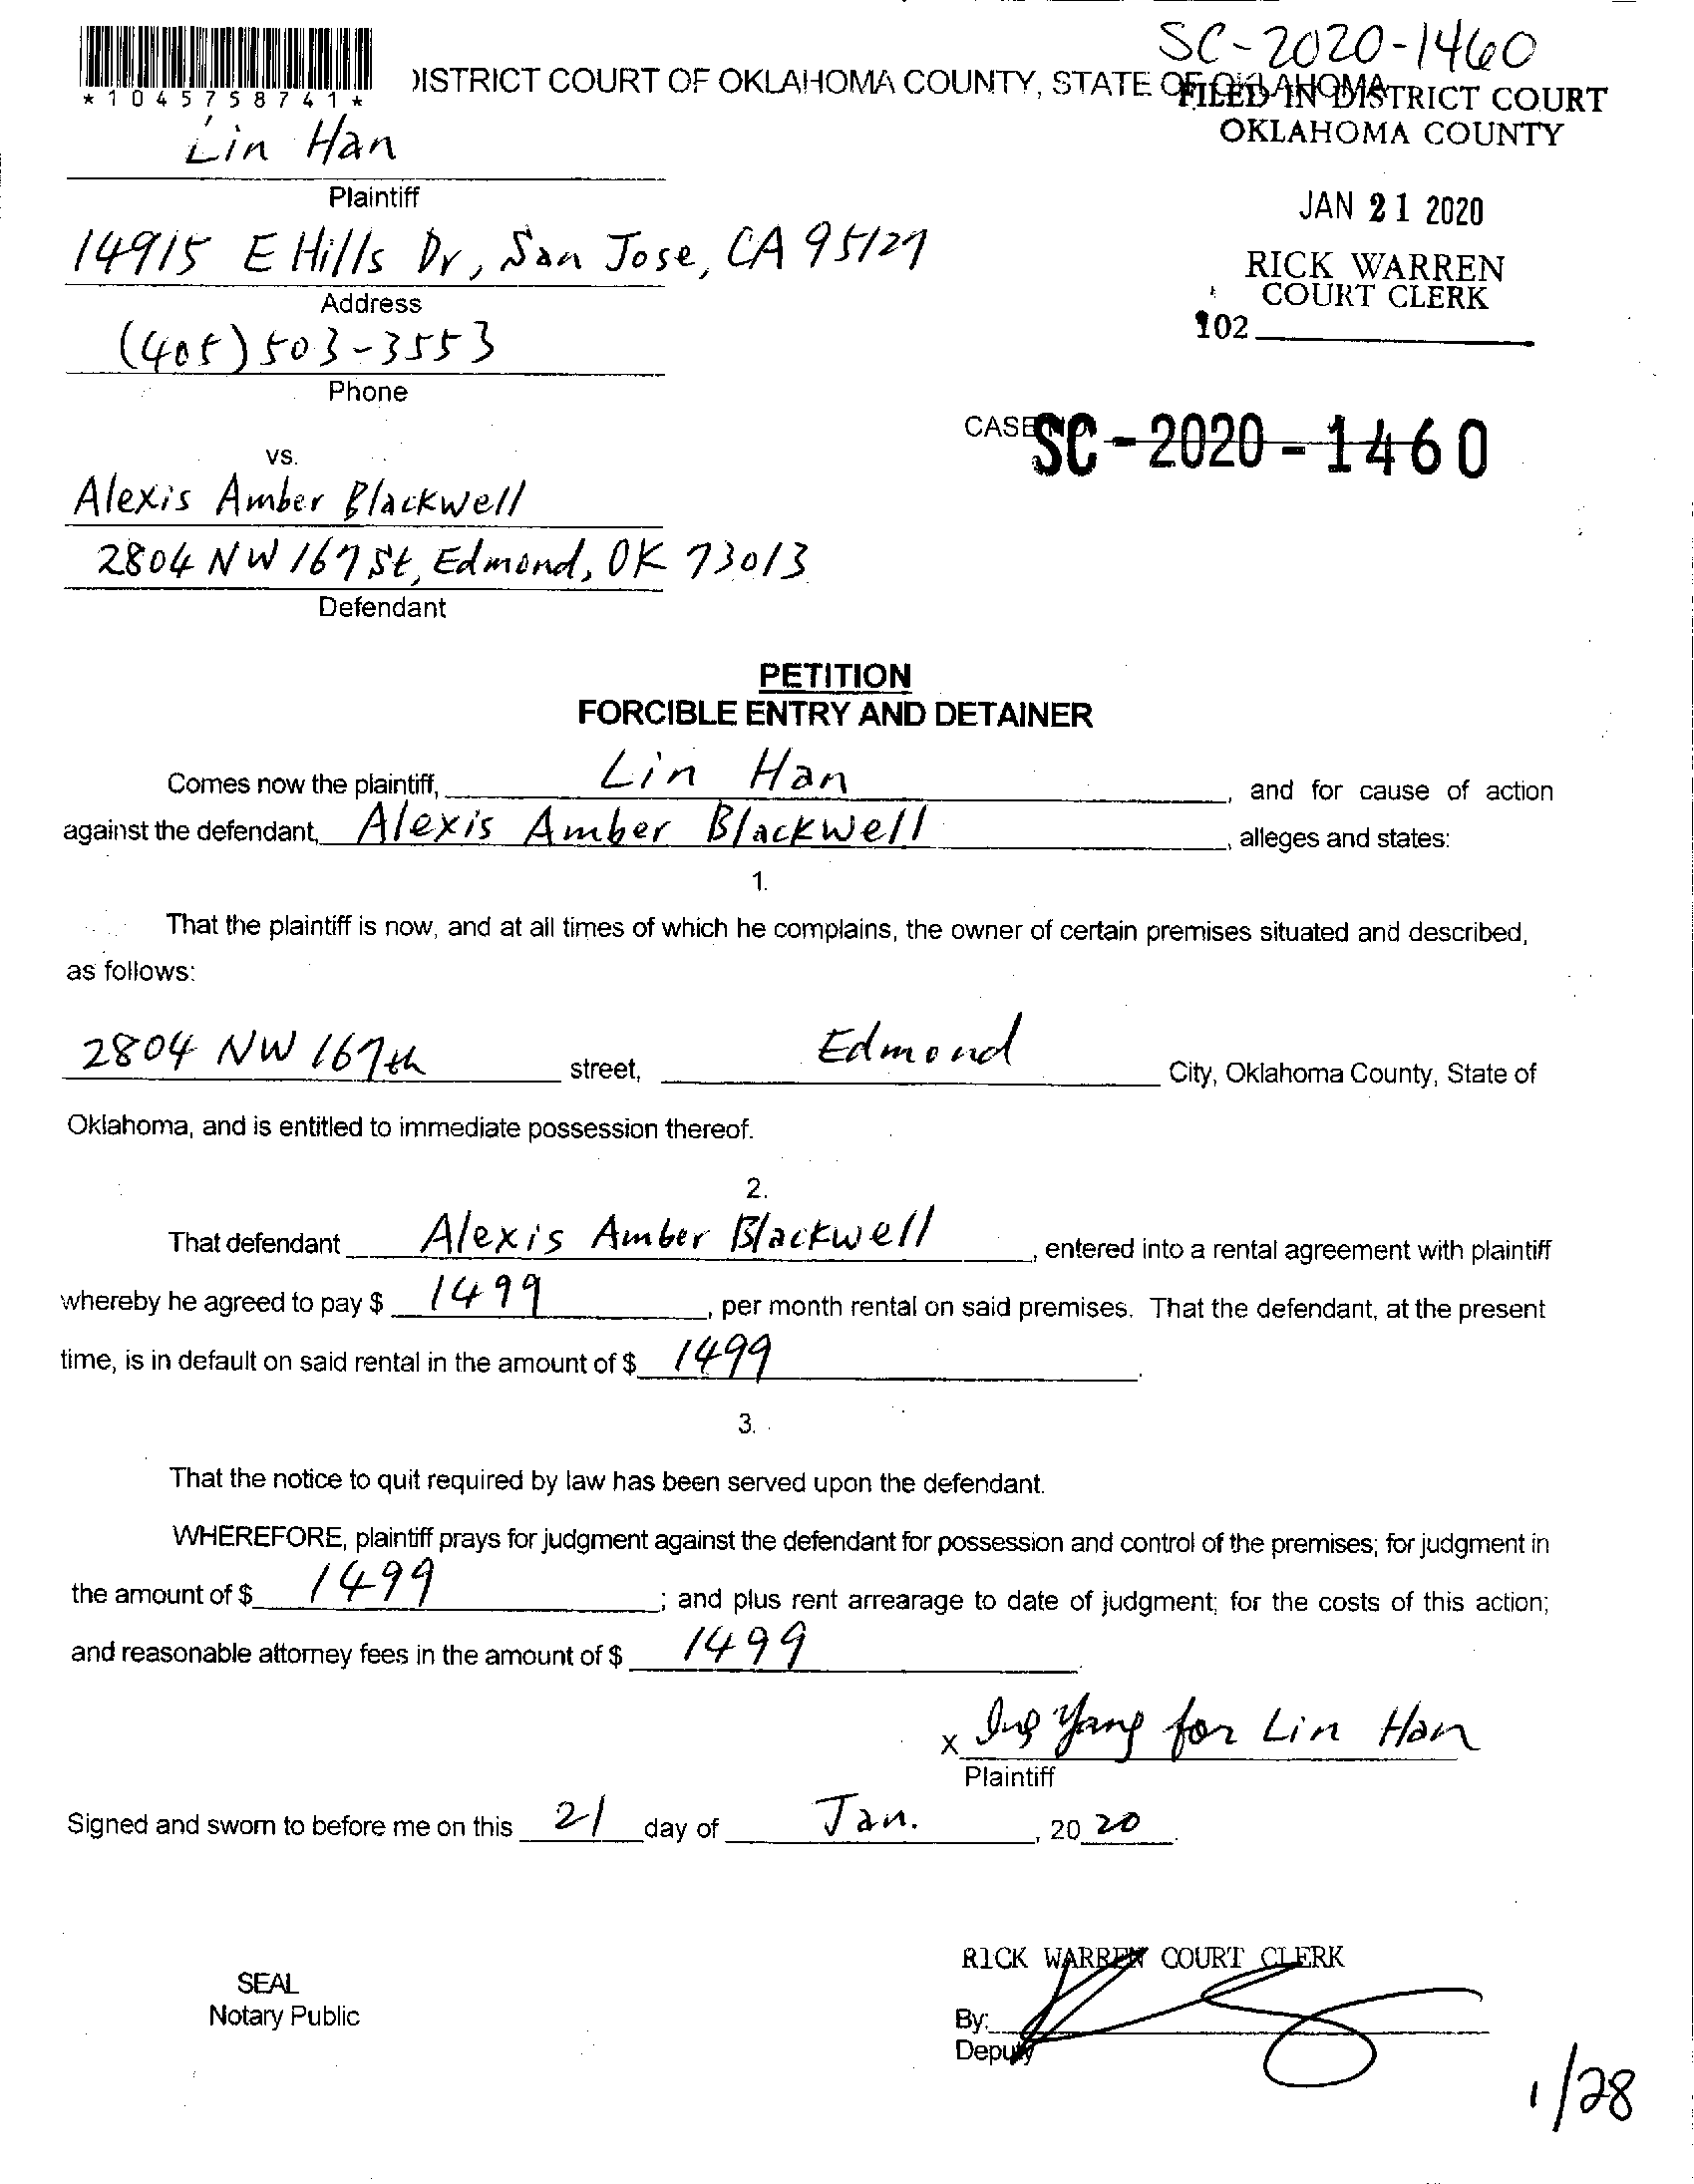 SC-2020-1460
*1045758741*
DISTRICT COURT OF OKLAHOMA COUNTY, STATE OF OKLAHOMA
FILED IN DISTRICT COURT
OKLAHOMA COUNTY
Lin Han
Plaintiff
JAN 21 2020
14915 E Hills Dr, San Jose, CA 95127
Address
RICK WARREN
COURT CLERK
102
(405) 503-3553
Phone
CASE NO. SC-2020-1460
vs.
Alexis Amber Blackwell
2804 NW 167 St, Edmond, OK 73013
Defendant
PETITION
FORCIBLE ENTRY AND DETAINER
Comes now the plaintiff, Lin Han, and for cause of action
against the defendant, Alexis Amber Blackwell, alleges and states:
1.
That the plaintiff is now, and at all times of which he complains, the owner of certain premises situated and described,
as follows:
2804 NW 167th street, Edmond City, Oklahoma County, State of
Oklahoma, and is entitled to immediate possession thereof.
2.
That defendant Alexis Amber Blackwell, entered into a rental agreement with plaintiff
whereby he agreed to pay $ 1499, per month rental on said premises. That the defendant, at the present
time, is in default on said rental in the amount of $ 1499.
3.
That the notice to quit required by law has been served upon the defendant.
WHEREFORE, plaintiff prays for judgment against the defendant for possession and control of the premises; for judgment in
the amount of $ 1499; and plus rent arrearage to date of judgment; for the costs of this action;
and reasonable attorney fees in the amount of $ 1499.
x Yang for Lin Han
Plaintiff
Signed and sworn to before me on this 21 day of Jan., 2020.
RICK WARREN COURT CLERK
SEAL
Notary Public
By:
Deputy
1/28